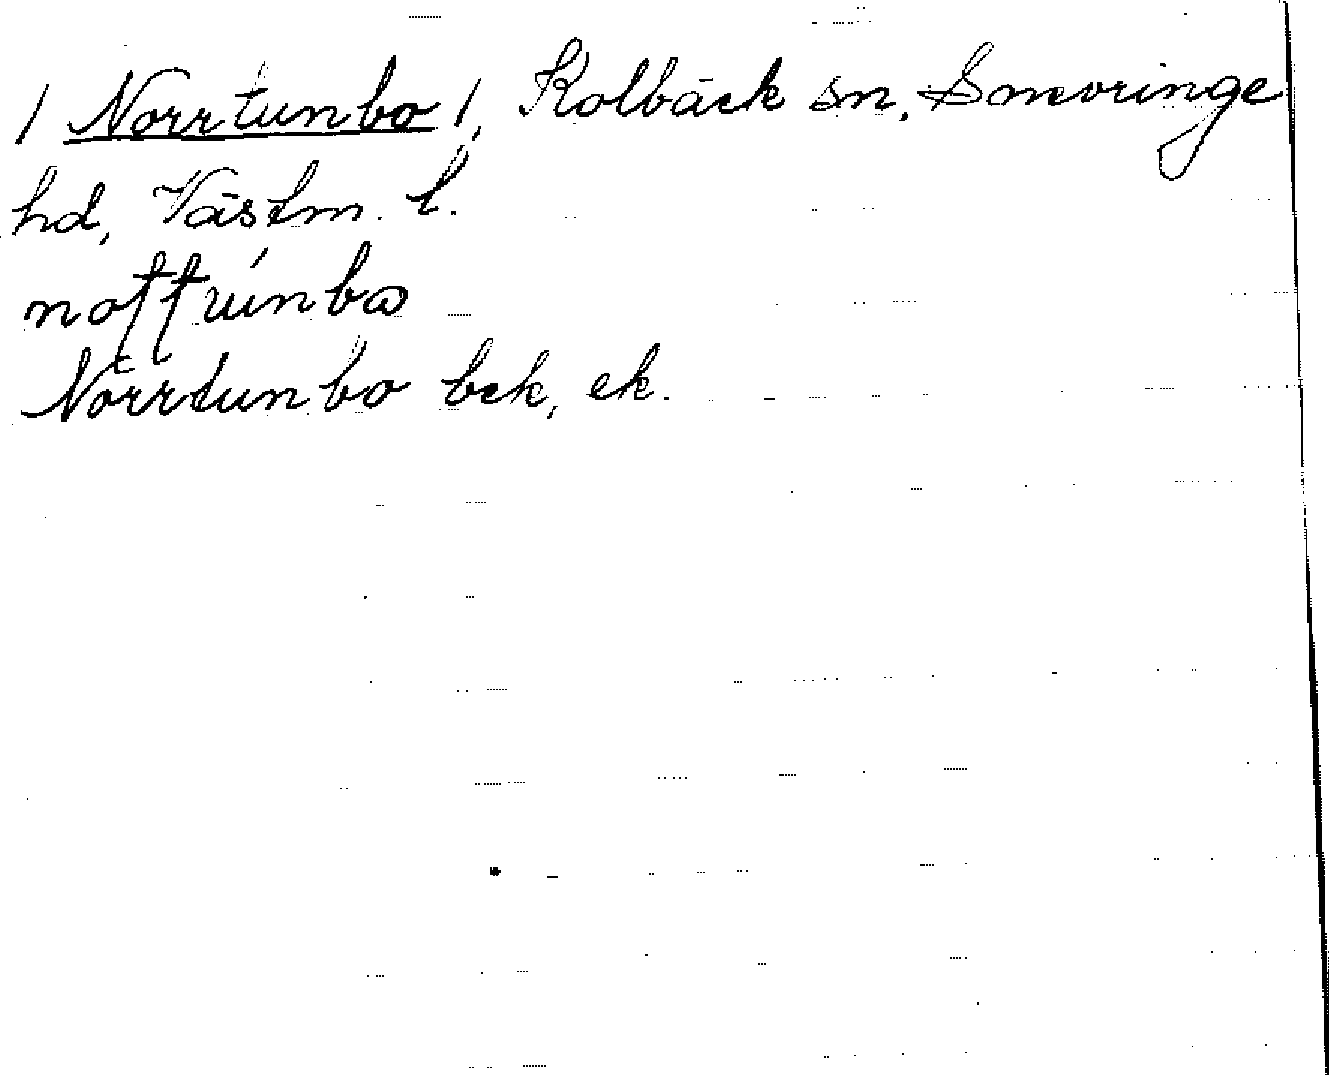 / Norrtunbo /, Kolbäck sn, Snevringe
hd, Västm. l.
Norrtunbo bek, ek.